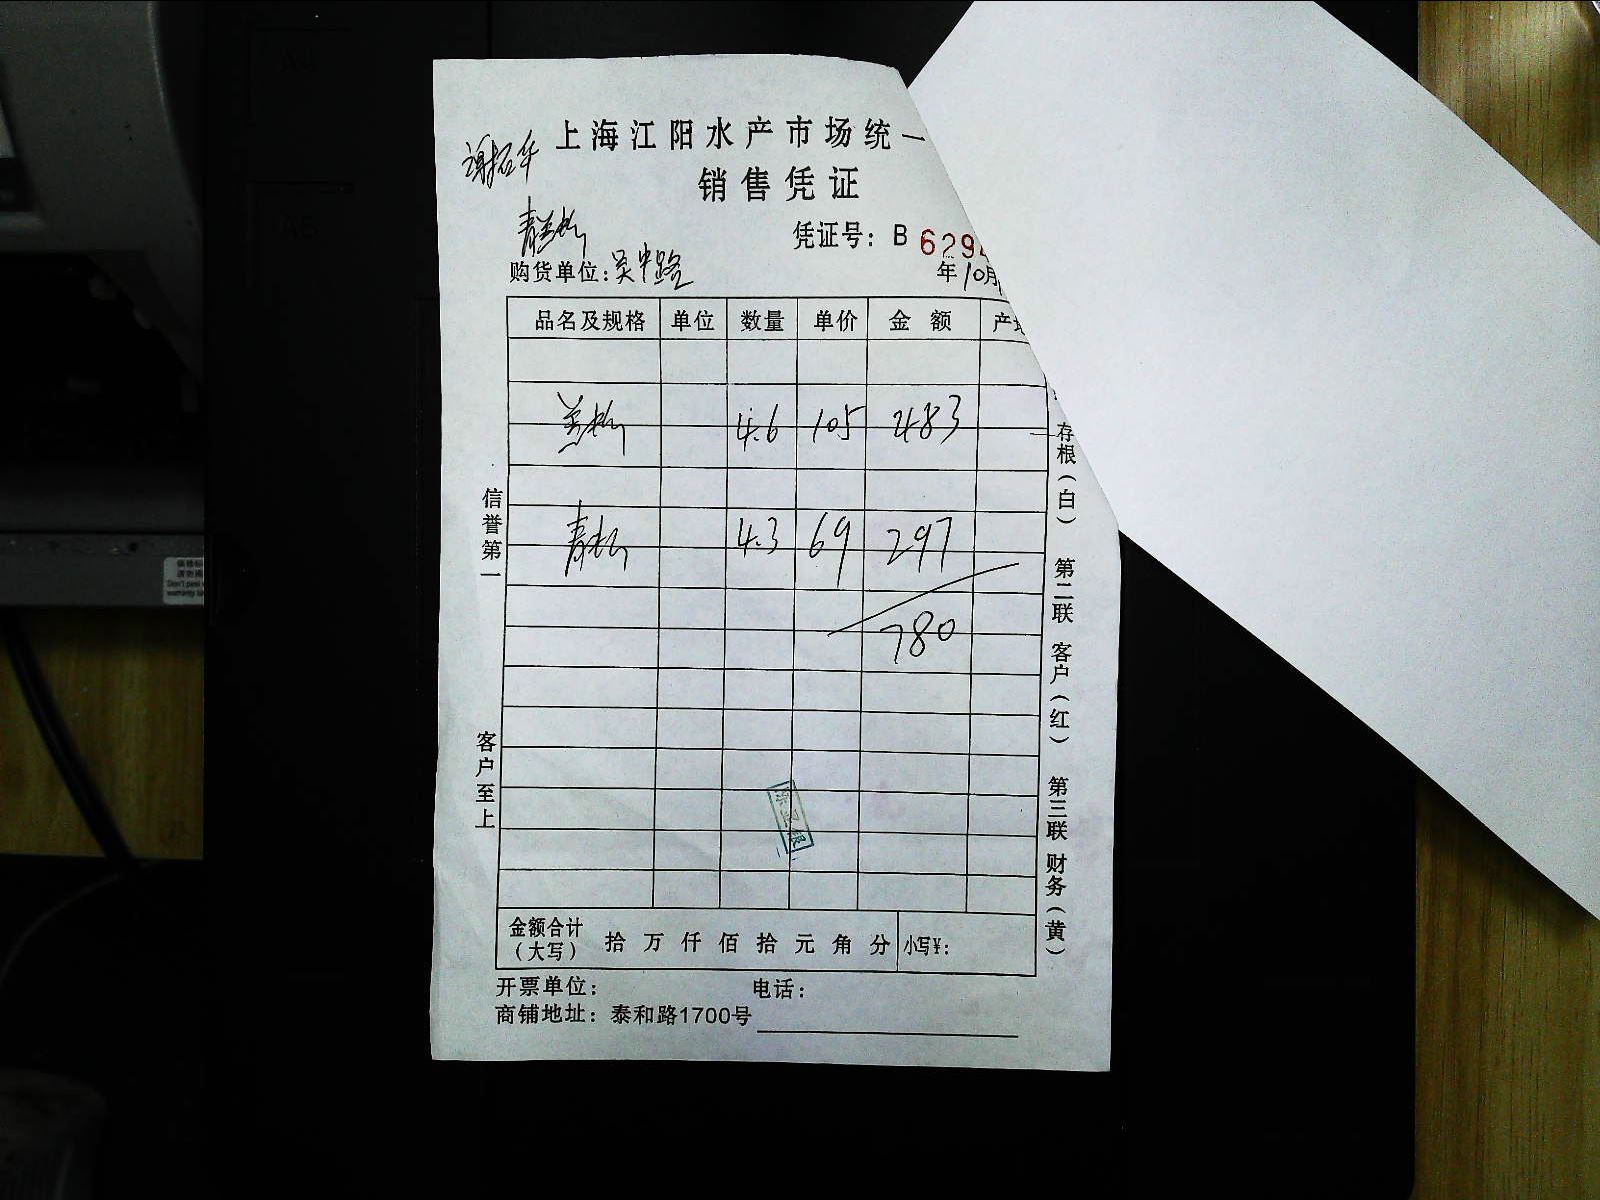 上海江阳水产市场统一
销售凭证
凭证号：B 629
购货单位：吴中路
年10月
品名及规格 单位 数量 单价 金额 产
4.6 105 483
4.3 69 297
780
信誉第一
客户至上
存根（白） 第二联 客户（红） 第三联 财务（黄）
金额合计（大写） 拾 万 仟 佰 拾 元 角 分 小写¥：
开票单位： 电话：
商铺地址：泰和路1700号